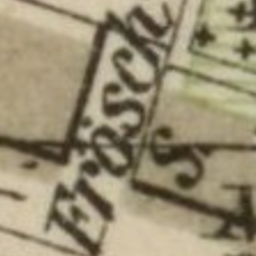 Frösch
S.